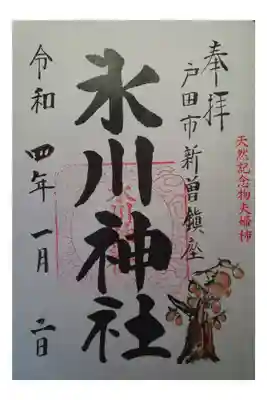 奉拝
戸田市新曽鎮座
天然記念物夫婦柿
氷川神社
令和四年一月二日